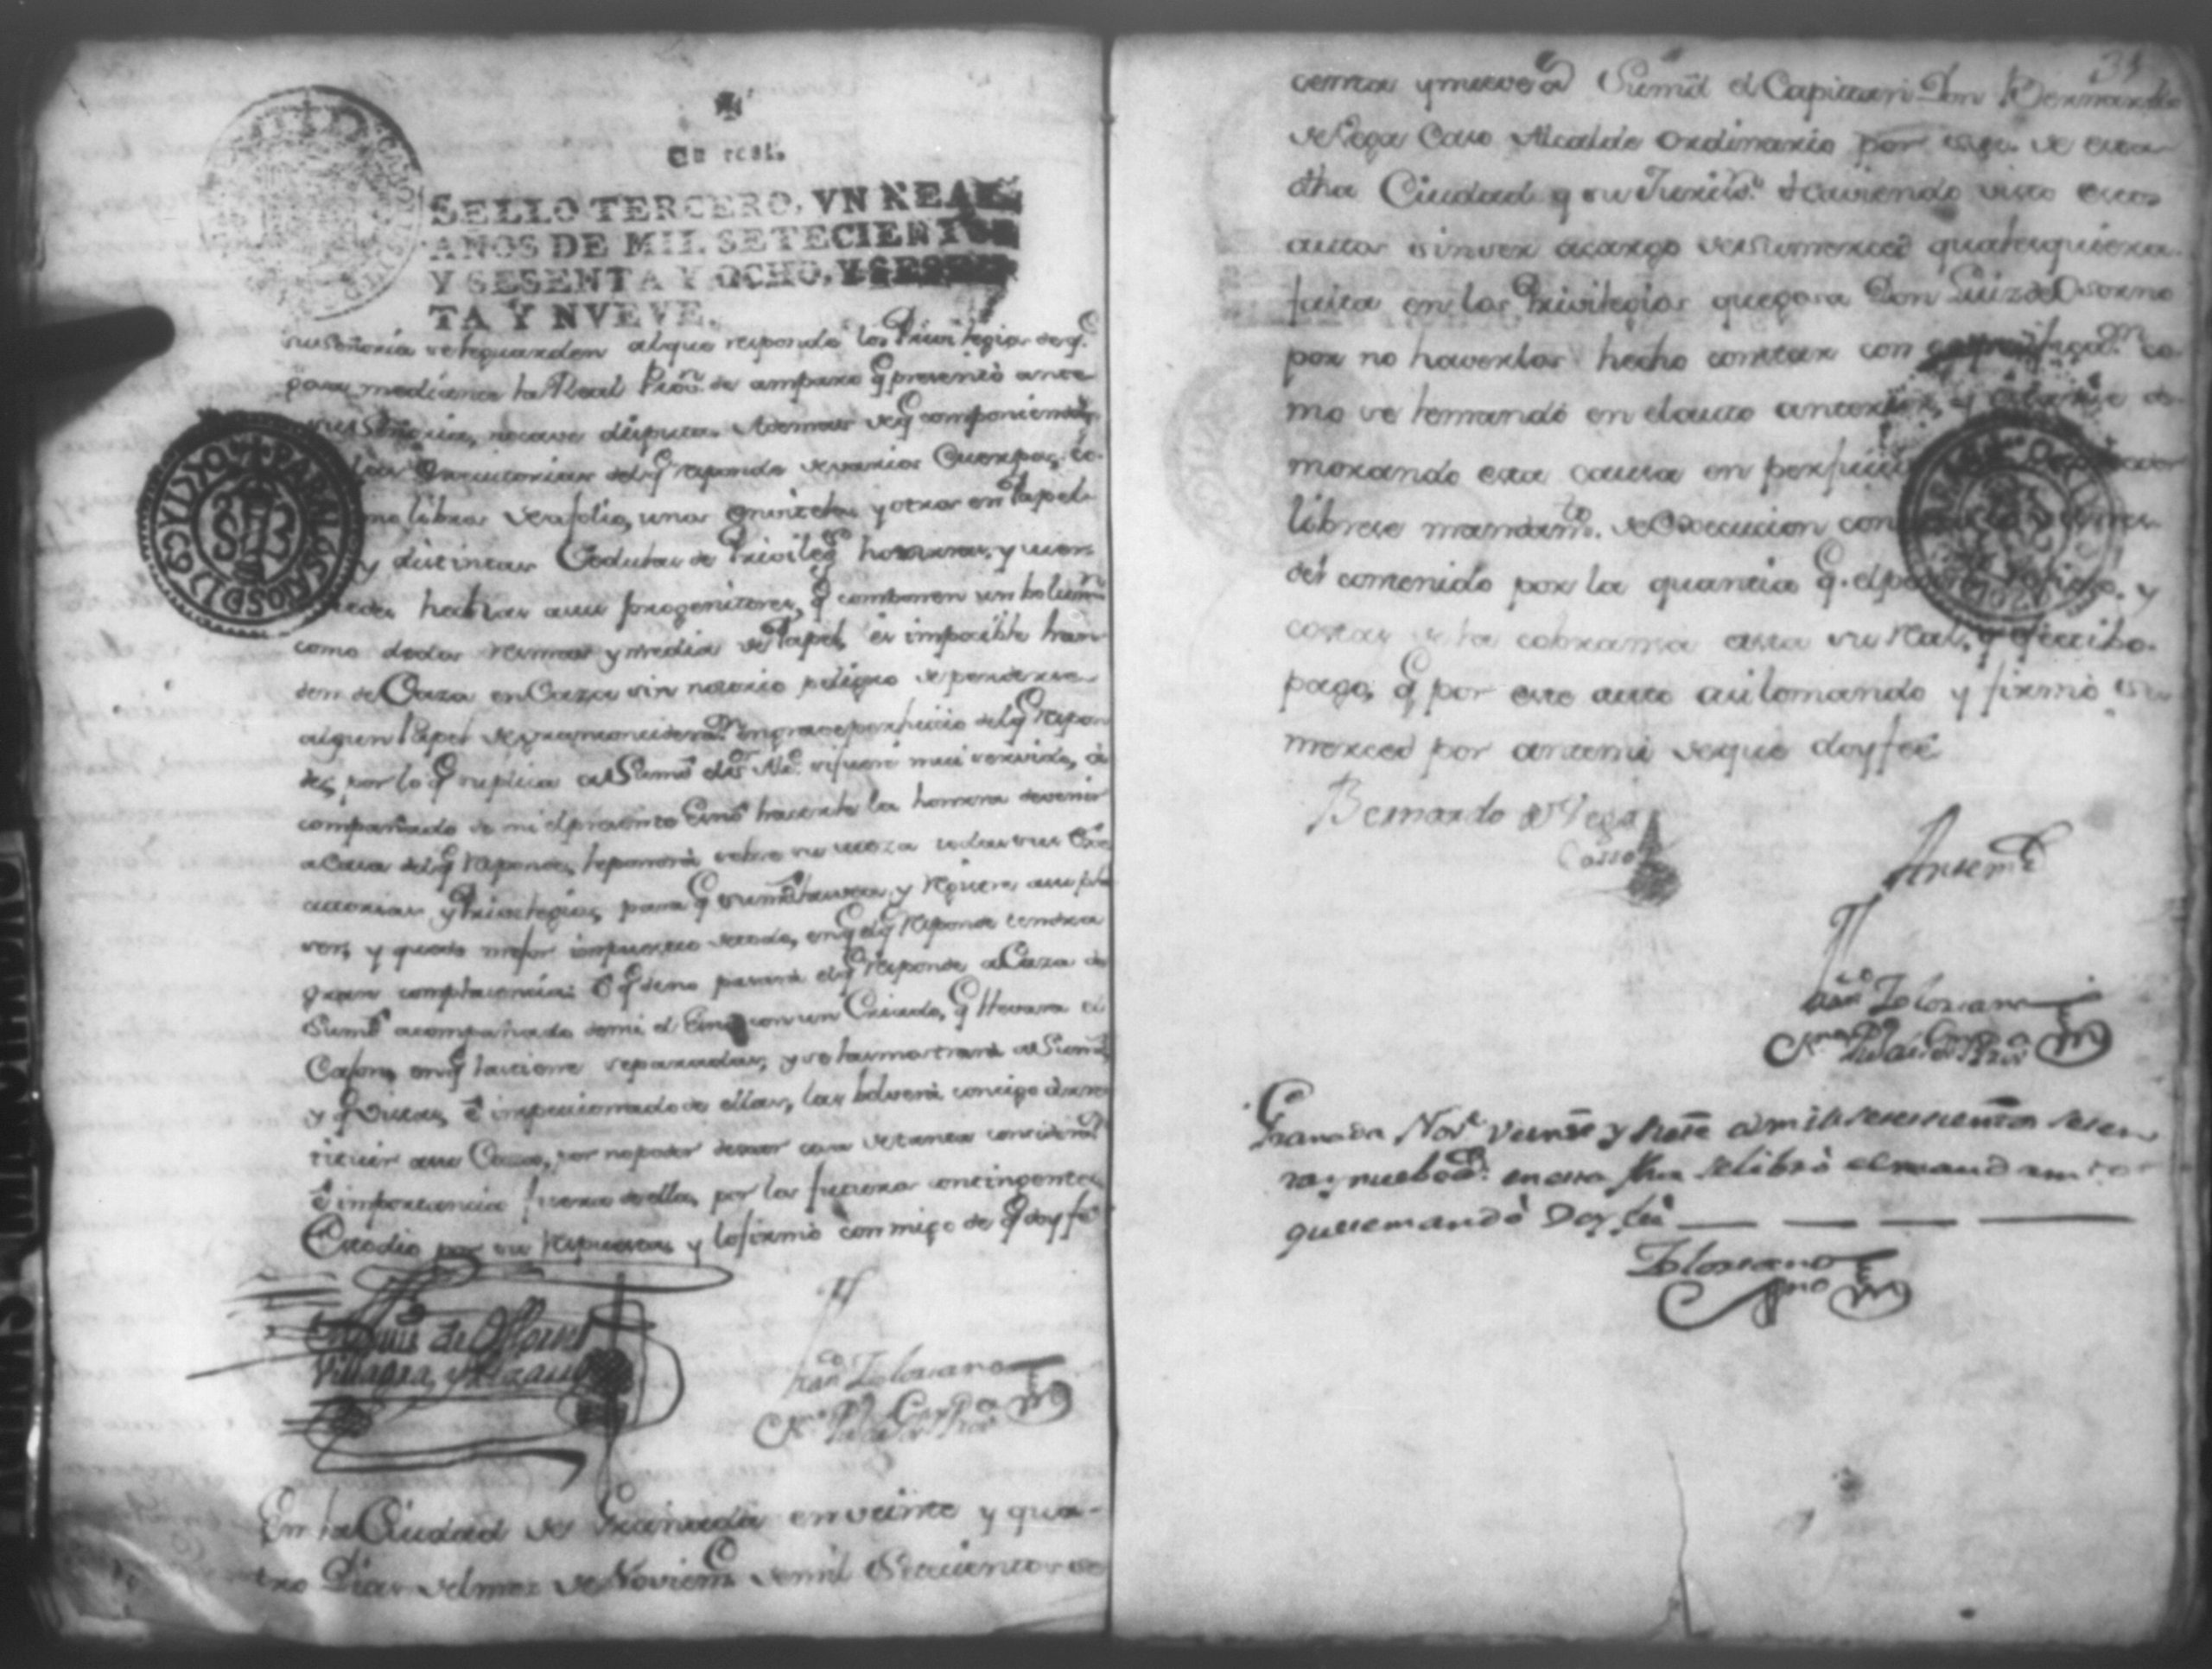 Un real.
SELLO TERCERO, VN REAL
AÑOS DE MIL SETECIENTOS
Y SESENTA Y OCHO, Y SESEN
TA Y NVEVE.
su señoria se le guarden al que responde los Privilegios de q.
goza mediante la Real Prov.n de amparo q presentó ante
su Señoria, no cave disputa. Ademas de q componiendose
las Executorias del q responde de varios Cuerpos, co-
mo libros de a folio, unos en vitela, y otros en Papel
y distintas Cedulas de Privileg.s honrras, y mer-
cedes hechas a sus progenitores, q componen un bolum.n
como de dos resmas y media de Papel, es imposible han-
den de Caza en Caza sin notorio peligro de perderse
algun Papel de gran consider.n en grave perjuicio del q respon
de, por lo q suplica a Sumd el Sr Alc.e si fuere mui servido, a
compañado de mi el presente Esno hacerle la honrra de venir
a Casa del q responde, le pondrá sobre su meza todas sus Exe
cutorias, y Privilegios, para q sumd las vea, y
y quede mejor impuesto de todo, en q el q responde tendra
gran complacencia: O q de no pasará el q responde a Caza de
Sumd acompañado de mi el Esno con un Criado, q llevara el
Cajon, en q las tiene separadas, y se las mostrará a Sumd
y q Vistas, e impuesto de ellas, las bolverá consigo á res
tituir a su Caza, por no poder dexar cosa de tanta considerac.n
é importancia fuera de ella, por los futuros contingentes
Esto dio por su respuesta, y lo firmó conmigo de q doy fé
Luis de
Villagra, y
Franco Zolorzano
En la Ciudad de Granada en veinte y qua-
tro Dias del mez de Noviem.e de mil Setecientos se
31
centa y nueve a.s Sumd el Capitan Don Bernardo
de Vega Caso Alcalde Ordinario por de esta
dha Ciudad y su Jurisd.n haviendo visto estos
autos sin ser a cargo de sumerced qualesquiera
falta en los Privilegios que goza Don Luiz de Osorno
por no haverlos hecho constar con co-
mo se le mandó en el auto anterior, y de-
morando esta causa en perjuicio
librese mandam.to de Execucion contra
del contenido por la quantia q. el y
costas de la cobranza asta su Real, y efectibo
pago, q por este auto asi lo mandó y firmó su
merced por antemi de que doy feé
Bernardo de Vega
Casso
Antemi
Franco Zolorzano
Granada Nov.e veinte y siete de mil setecientos sesen
ta y nueve a.s en esta fha se libró el mandamiento
que se mandó Doy fé
Zolorzano